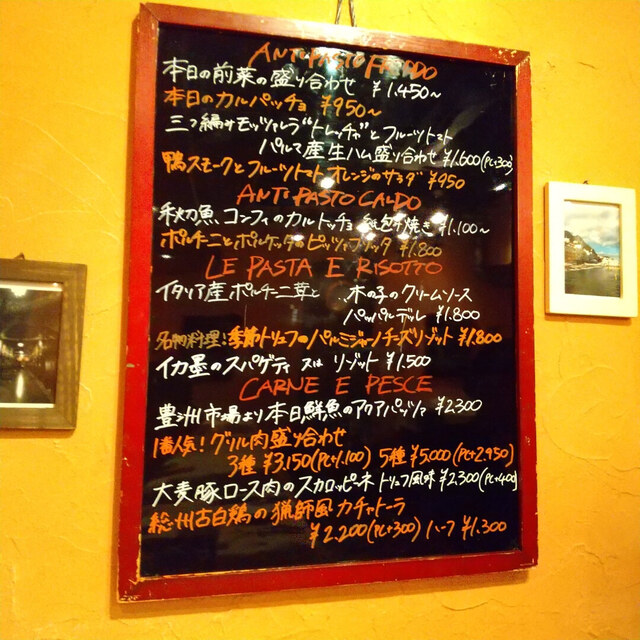 ANTIPASTO FREDDO
本日の前菜の盛り合わせ ¥1.450〜
本日のカルパッチョ ¥950〜
三つ編みモッツァレラ"トレッチャ"とフルーツトマト
パルマ産生ハム盛り合わせ ¥1.600(PC+300)
鴨スモークとフルーツトマト オレンジのサラダ ¥950
ANTIPASTO CALDO
秋刀魚 コンフィのカルトッチョ 紙包み焼き ¥1.100〜
ポルチーニとポルケッタのピッツァフリッタ ¥1.800
LE PASTA E RISOTTO
イタリア産ポルチーニ茸と 木の子のクリームソース
パッパルデッレ ¥1.800
名物料理:季節トリュフのパルミジャーノチーズリゾット ¥1.800
イカ墨のスパゲティ 又は リゾット ¥1.500
CARNE E PESCE
豊洲市場より本日鮮魚のアクアパッツァ ¥2.300
1番人気!グリル肉盛り合わせ
3種 ¥3.150(PC+1.100) 5種 ¥5.000(PC+2.950)
大麦豚ロース肉のスカロッピーネ トリュフ風味 ¥2.300(PC+400)
総州古白鶏の猟師風 カチャトーラ
¥2.200(PC+300) ハーフ ¥1.300